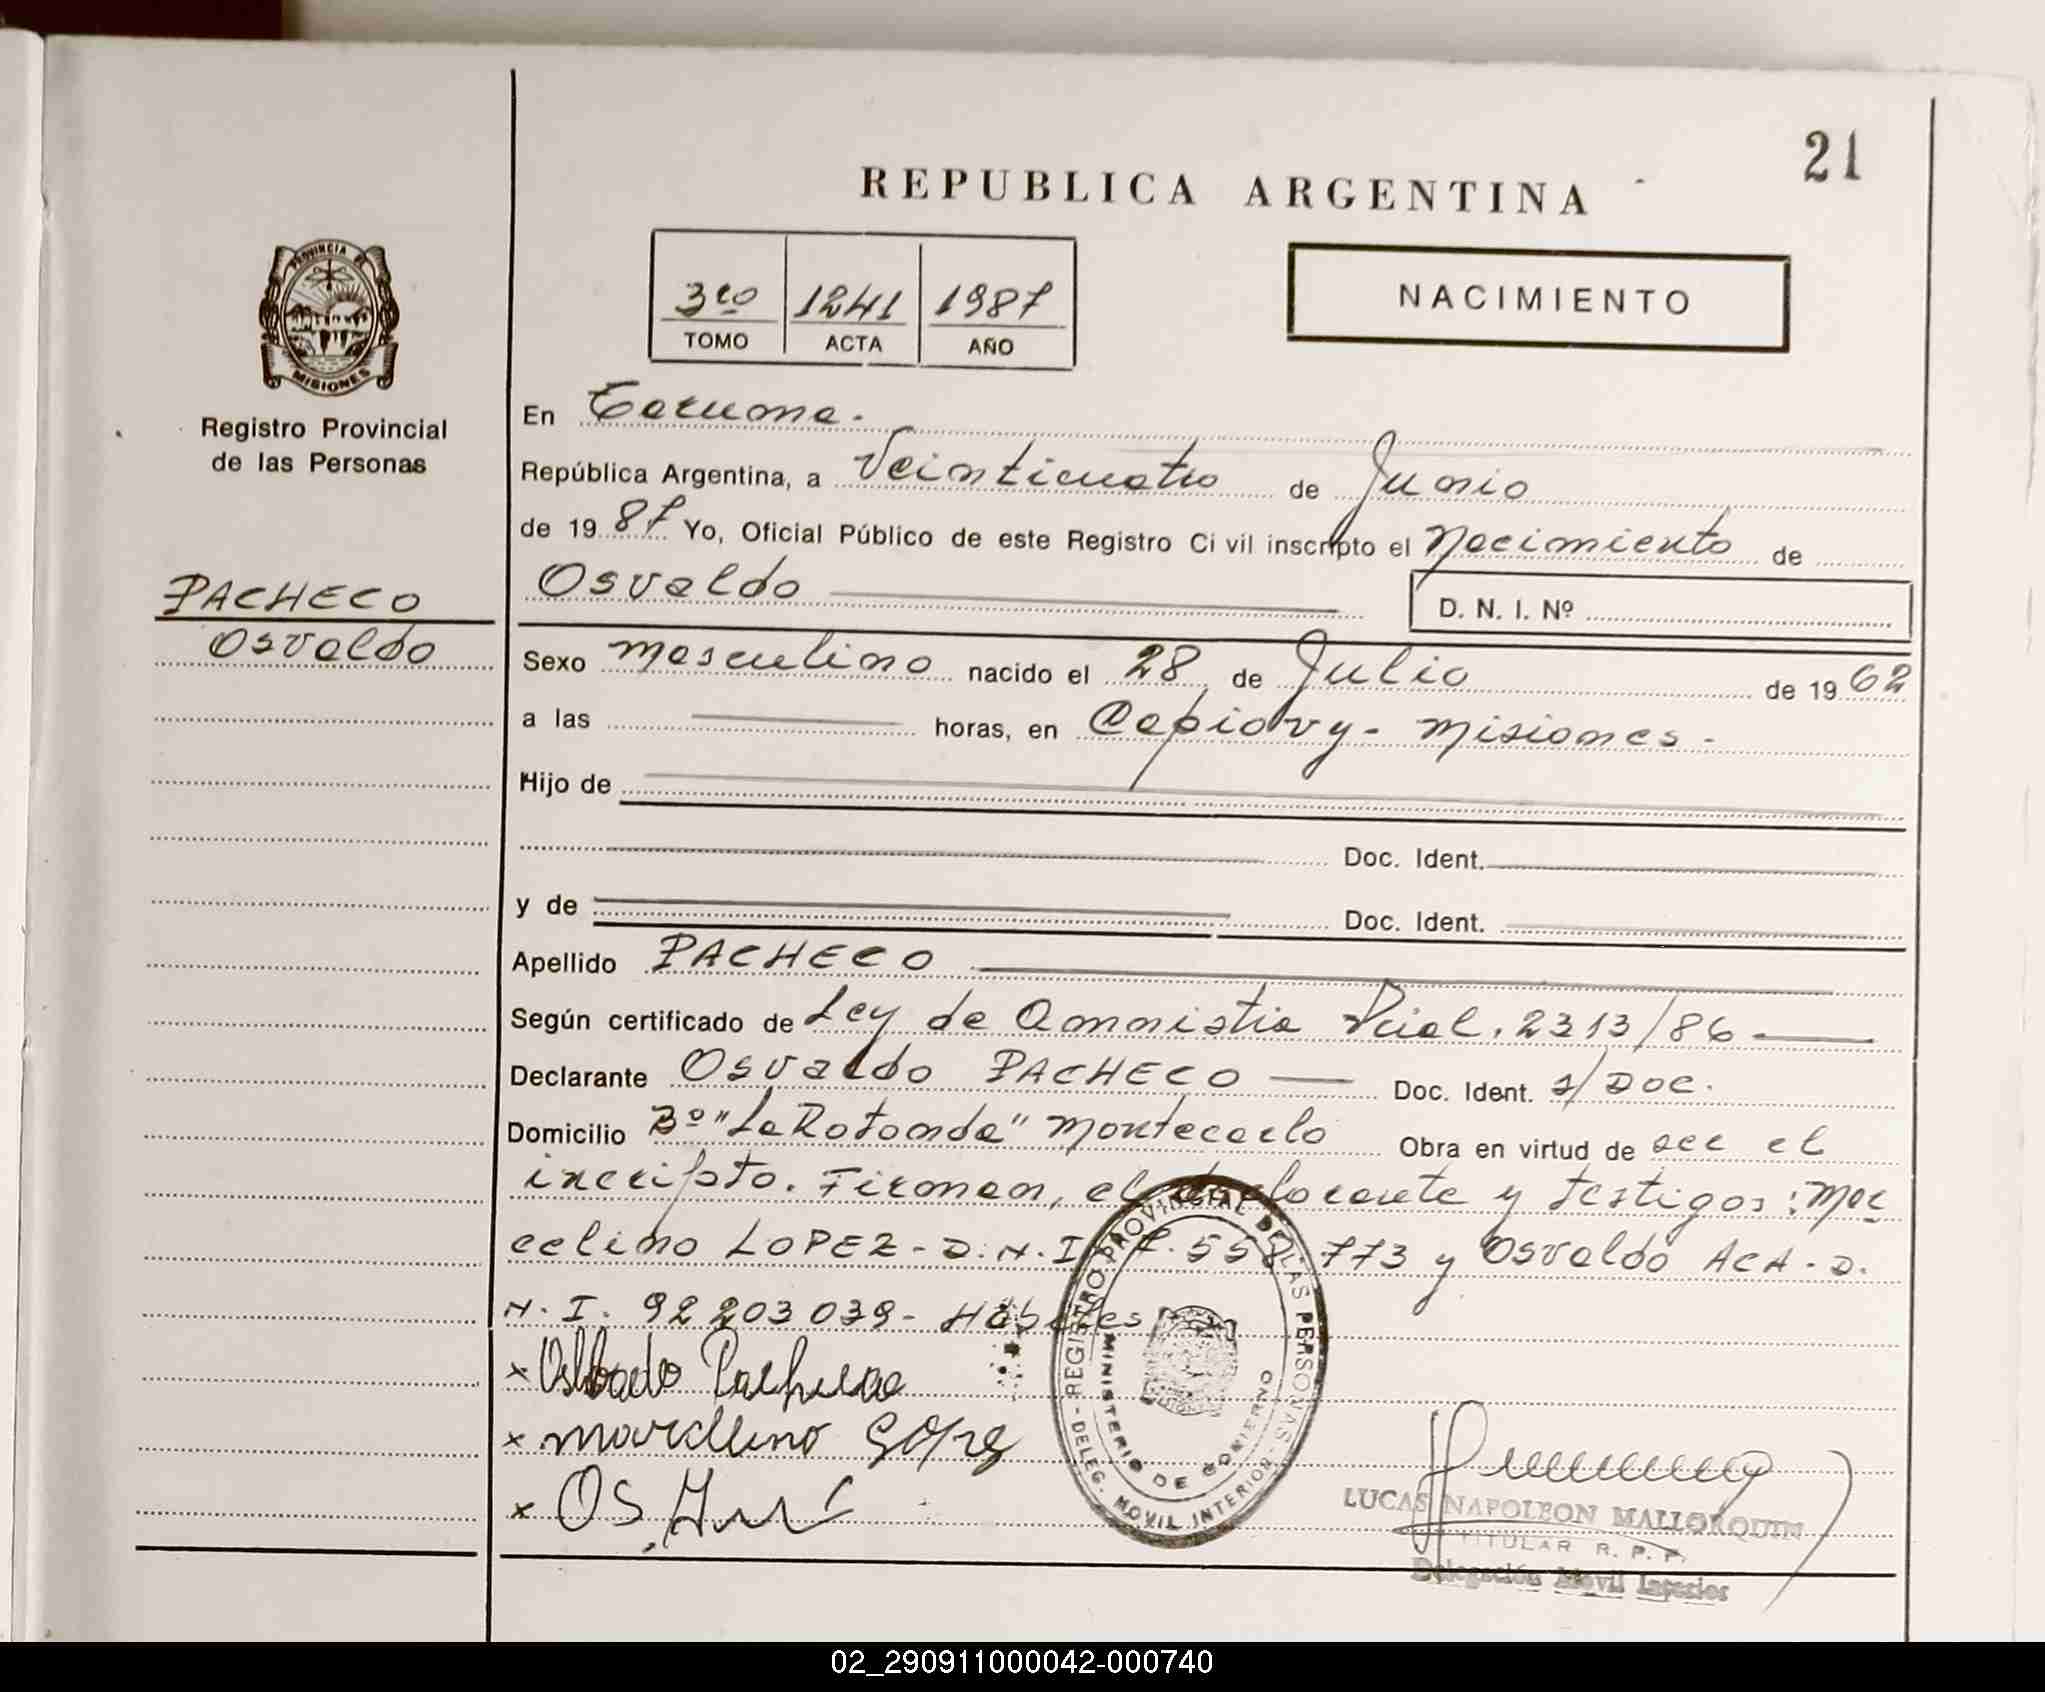 21
REPUBLICA ARGENTINA
3ro 1241 1987
TOMO ACTA AÑO
NACIMIENTO
PROVINCIA DE
MISIONES
Registro Provincial
de las Personas
PACHECO
Osvaldo
En Taruma.
República Argentina, a Veinticuatro de Junio
de 19 87 Yo, Oficial Público de este Registro Ci vil inscripto el Nacimiento de
Osvaldo
D. N. I. Nº
Sexo masculino nacido el 28 de Julio de 19 62
a las horas, en Capiovy - Misiones -
Hijo de
Doc. Ident.
y de Doc. Ident.
Apellido PACHECO
Según certificado de Ley de Amnistia Pcial. 2313/86
Declarante Osvaldo PACHECO Doc. Ident. s/Doc.
Domicilio Bº "La Rotonda" Montecarlo Obra en virtud de ser el
incripto. Firman, el declarante y testigos: Mar
celino LOPEZ - D.N.I. 7.558.773 y Osvaldo ACA - D.
N. I. 92203039 - Habiles
x Osbaldo Pacheco
x marcelino Lopez
x Os
REGISTRO PROVINCIAL DE LAS PERSONAS - DELEG. MOVIL INTERIOR -
MINISTERIO DE GOBIERNO
LUCAS NAPOLEON MALLORQUIN
TITULAR R. P. P.
Delegación Movil Interior
02_290911000042-000740